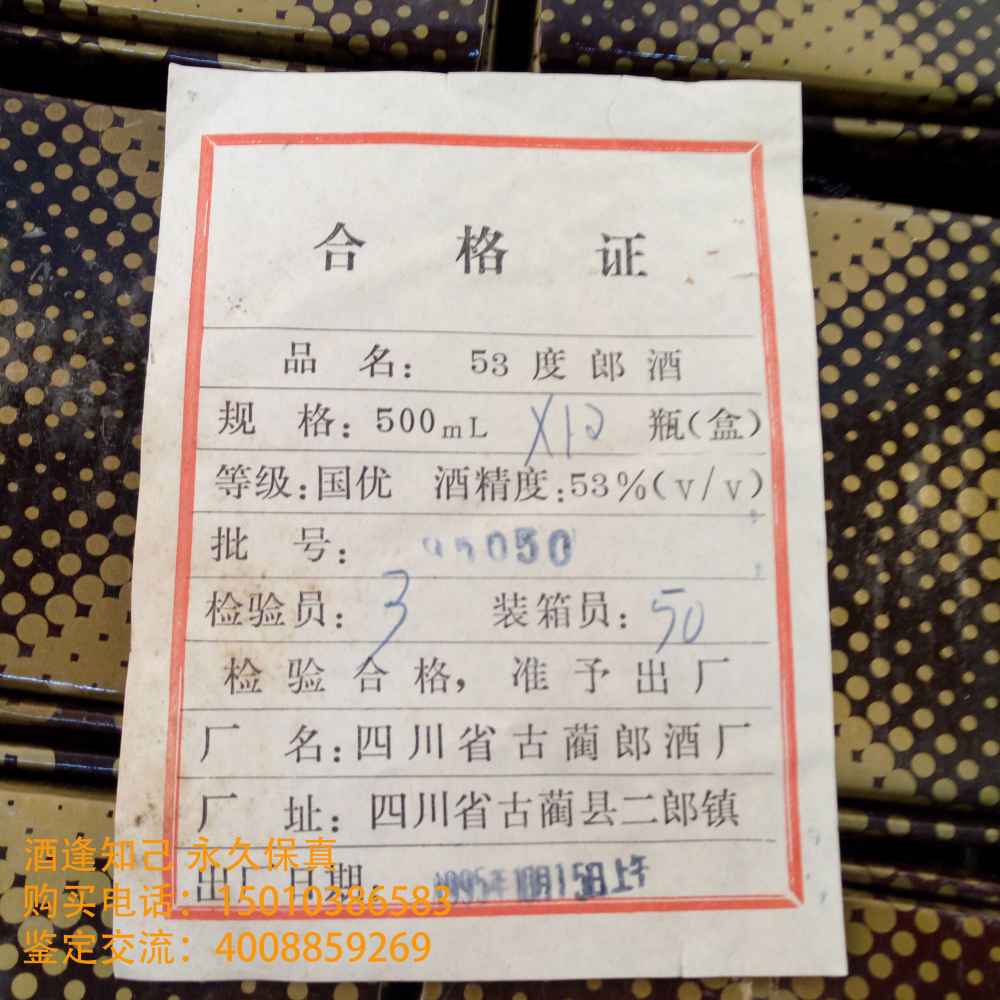 合格证
品 名: 53度郎酒
规 格: 500mL ×12 瓶(盒)
等级:国优 酒精度:53%(v/v)
批 号: 050
检验员: 3 装箱员: 50
检验合格,准予出厂
厂 名:四川省古蔺郎酒厂
厂 址:四川省古蔺县二郎镇
出厂日期: 1995年10月15日上午
酒逢知己 永久保真
购买电话:15010386583
鉴定交流:4008859269